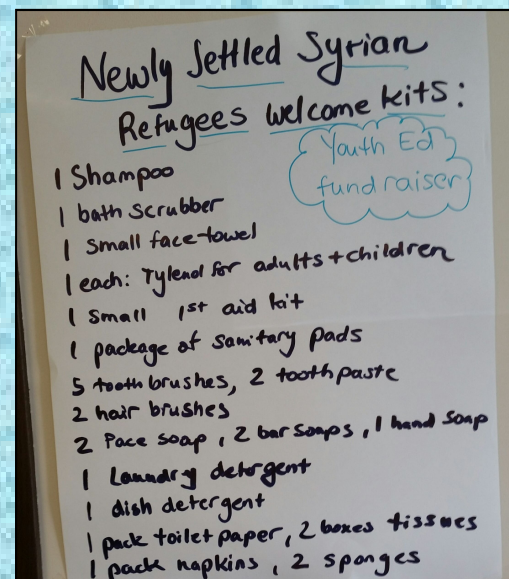 Newly Settled Syrian
Refugees welcome kits:
Youth Ed
fundraiser
1 Shampoo
1 bath scrubber
1 small face towel
1 each: Tylenol for adults + children
1 small 1st aid kit
1 package of sanitary pads
5 toothbrushes, 2 toothpaste
2 hair brushes
2 Face soap, 2 bar soaps, 1 hand soap
1 Laundry detergent
1 dish detergent
1 pack toilet paper, 2 boxes tissues
1 pack napkins, 2 sponges